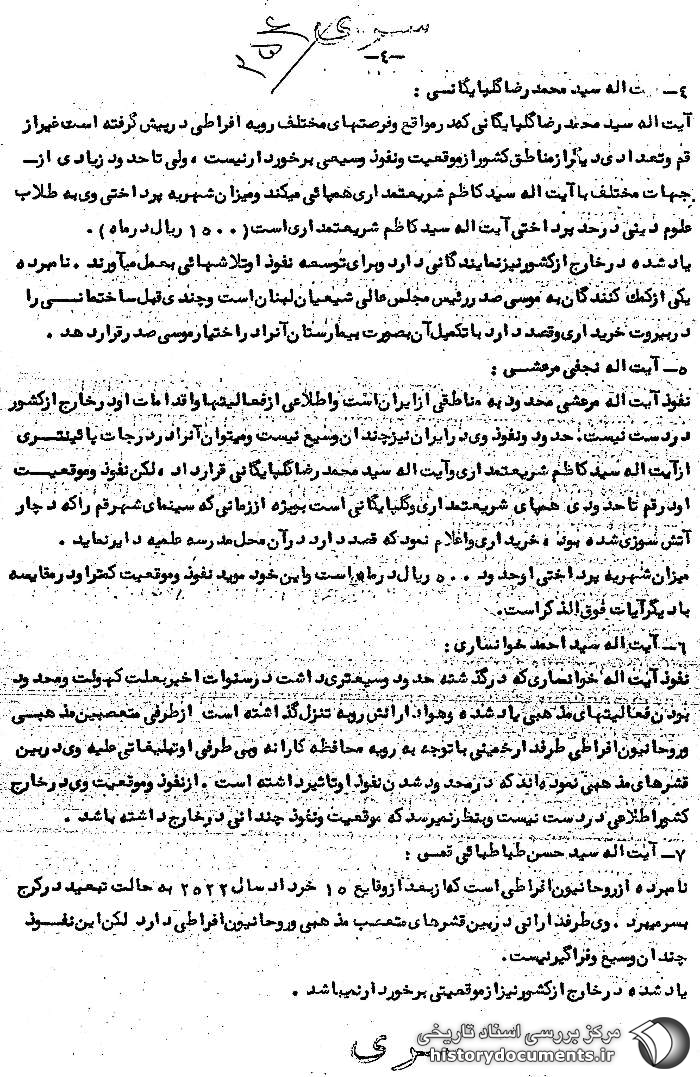 سری
-٤-
٤- آیت اله سید محمد رضا گلپایگانی :
آیت اله سید محمد رضا گلپایگانی که در مواقع و فرصتهای مختلف رویه افراطی در پیش گرفته است غیر از
قم و تعدادی دیگر از مناطق کشور از موقعیت و نفوذ وسیعی برخوردار نیست ، ولی تا حدود زیادی از
جهات مختلف با آیت اله سید کاظم شریعتمداری همپائی میکند و میزان شهریه پرداختی وی به طلاب
علوم دینی در حد پرداختی آیت اله سید کاظم شریعتمداری است (١٥٠٠ ریال در ماه) .
یاد شده در خارج از کشور نیز نمایندگانی دارد و برای توسعه نفوذ او تلاشهائی بعمل میآورند . نامبرده
یکی از کمک کنندگان به موسی صدر رئیس مجلس عالی شیعیان لبنان است و چندی قبل ساختمانی را
در بیروت خریداری و قصد دارد با تکمیل آن بصورت بیمارستان آنرا در اختیار موسی صدر قرار دهد .
٥- آیت اله نجفی مرعشی :
نفوذ آیت اله مرعشی محدود به مناطقی از ایران است و اطلاعی از فعالیتها و اقدامات او در خارج از کشور
در دست نیست. حدود و نفوذ وی در ایران نیز چندان وسیع نیست و میتوان آنرا در درجات پائینتری
از آیت اله سید کاظم شریعتمداری و آیت اله سید محمد رضا گلپایگانی قرار داد ، لکن نفوذ و موقعیت
او در قم تا حدودی همپای شریعتمداری و گلپایگانی است بویژه از زمانی که سینمای شهر قم را که دچار
آتش سوزی شده بود ، خریداری و اعلام نمود که قصد دارد در آن محل مدرسه علمیه دایر نماید .
میزان شهریه پرداختی او حدود ٥٠٠ ریال در ماه است و این خود موید نفوذ و موقعیت کمتر او در مقایسه
با دیگر آیات فوق الذکر است.
٦- آیت اله سید احمد خوانساری :
نفوذ آیت اله خوانساری که در گذشته حدود وسیعتری داشت در سنوات اخیر بعلت کهولت و محدود
بودن فعالیتهای مذهبی یاد شده و هوادارانش رو به تنزل گذاشته است از طرفی متعصبین مذهبی
و روحانیون افراطی طرفدار خمینی با توجه به رویه محافظه کارانه و بی طرفی او تبلیغاتی علیه وی در بین
قشرهای مذهبی نموده اند که در محدود شدن نفوذ او تاثیر داشته است . از نفوذ و موقعیت وی در خارج
کشور اطلاعی در دست نیست و بنظر نمیرسد که موقعیت و نفوذ چندانی در خارج داشته باشد .
٧- آیت اله سید حسن طباطبائی قمی :
نامبرده از روحانیون افراطی است که از بعد از وقایع ١٥ خرداد سال ٢٥٢٢ به حالت تبعید در کرج
بسر میبرد . وی طرفدارانی در بین قشرهای متعصب مذهبی و روحانیون افراطی دارد لکن این نفوذ
چندان وسیع و فراگیر نیست.
یاد شده در خارج از کشور نیز از موقعیتی برخوردار نمیباشد .
سری
مرکز بررسی اسناد تاریخی
historydocuments.ir